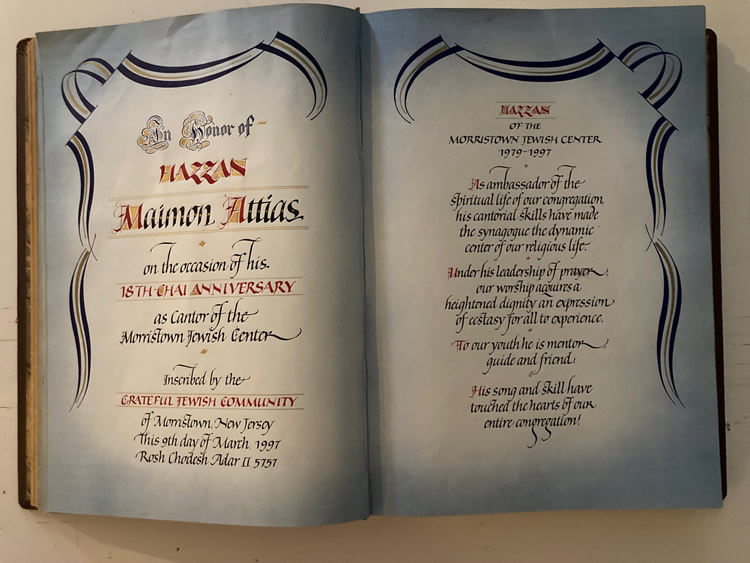 In Honor of
HAZZAN
Maimon Attias
on the occasion of his
18TH-CHAI ANNIVERSARY
as Cantor of the
Morristown Jewish Center
Inscribed by the
GRATEFUL JEWISH COMMUNITY
of Morristown, New Jersey
This 9th day of March, 1997
Rosh Chodesh Adar II 5757
HAZZAN
OF THE
MORRISTOWN JEWISH CENTER
1979-1997
As ambassador of the
spiritual life of our congregation,
his cantorial skills have made
the synagogue the dynamic
center of our religious life.
Under his leadership of prayer,
our worship acquires a
heightened dignity an expression
of ecstasy for all to experience.
To our youth he is mentor
guide and friend.
His song and skill have
touched the hearts of our
entire congregation!